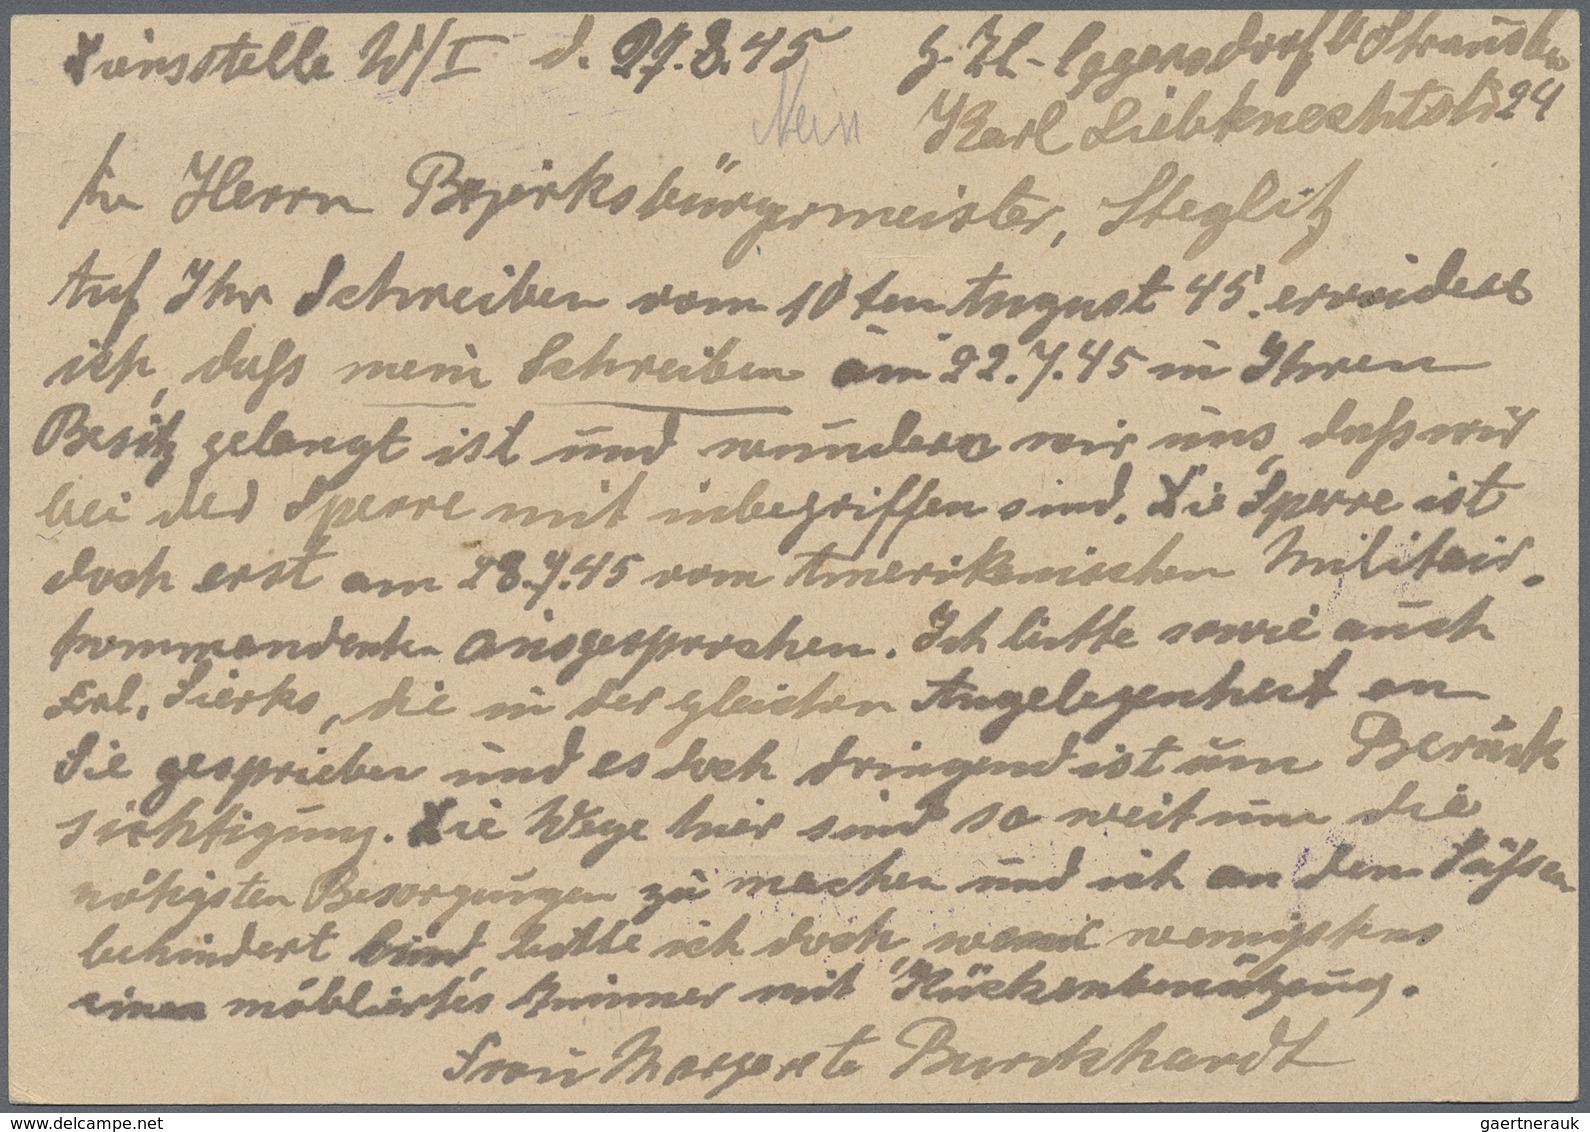 Diensstelle W/I d. 27.8.45 z. Zt. Eggersdorf b Strausb.
Nein
Karl Liebknechtstr 24
An Herrn Bezirksbürgermeister, Steglitz
Auf Ihr Schreiben vom 10ten August 45. erwidere
ich, daß mein Schreiben am 22.7.45 in Ihren
Besitz gelangt ist und wundern wir uns, daß wir
bei der Sperre mit inbegriffen sind. Die Sperre ist
doch erst am 28.7.45 vom Amerikanischen Militair-
kommandenten ausgesprochen. Ich bitte sowie auch
Frl. Sierks, die in der gleichen Angelegenheit an
Sie gesprieben und es doch dringend ist um Berück
sichtigung. Die Wege hier sind so weit um die
nötigsten Besorgungen zu machen und ich an den Füßen
behindert bin, bitte ich doch, wenn wenigstens
einen möbliertes Zimmer mit Kückenbenützung.
Frau Margarete Burckhardt
gaertnerauk